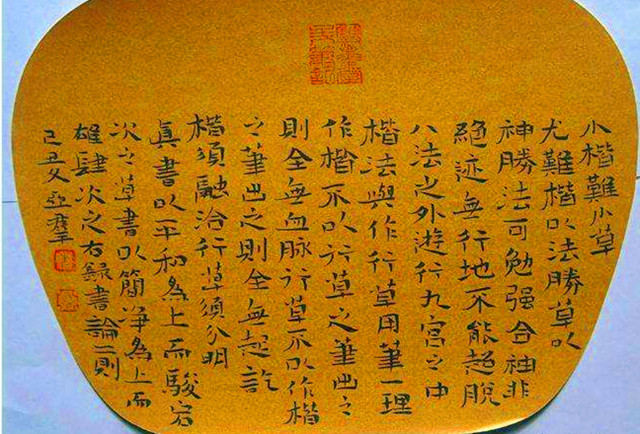 小楷難小草
尤難楷以法勝草以
神勝法可勉强合神非
絕迹無行地不能超脫
八法之外遊行九宮之中
楷法與作行草用筆一理
作楷不以行草之筆出之
則全無血脉行草不以作楷
之筆出之則全無起訖
楷須融洽行草須分明
真書以平和為上而駿宕
次之草書以簡淨為上而
雄肆次之右錄書論二則
己丑夂亞羣